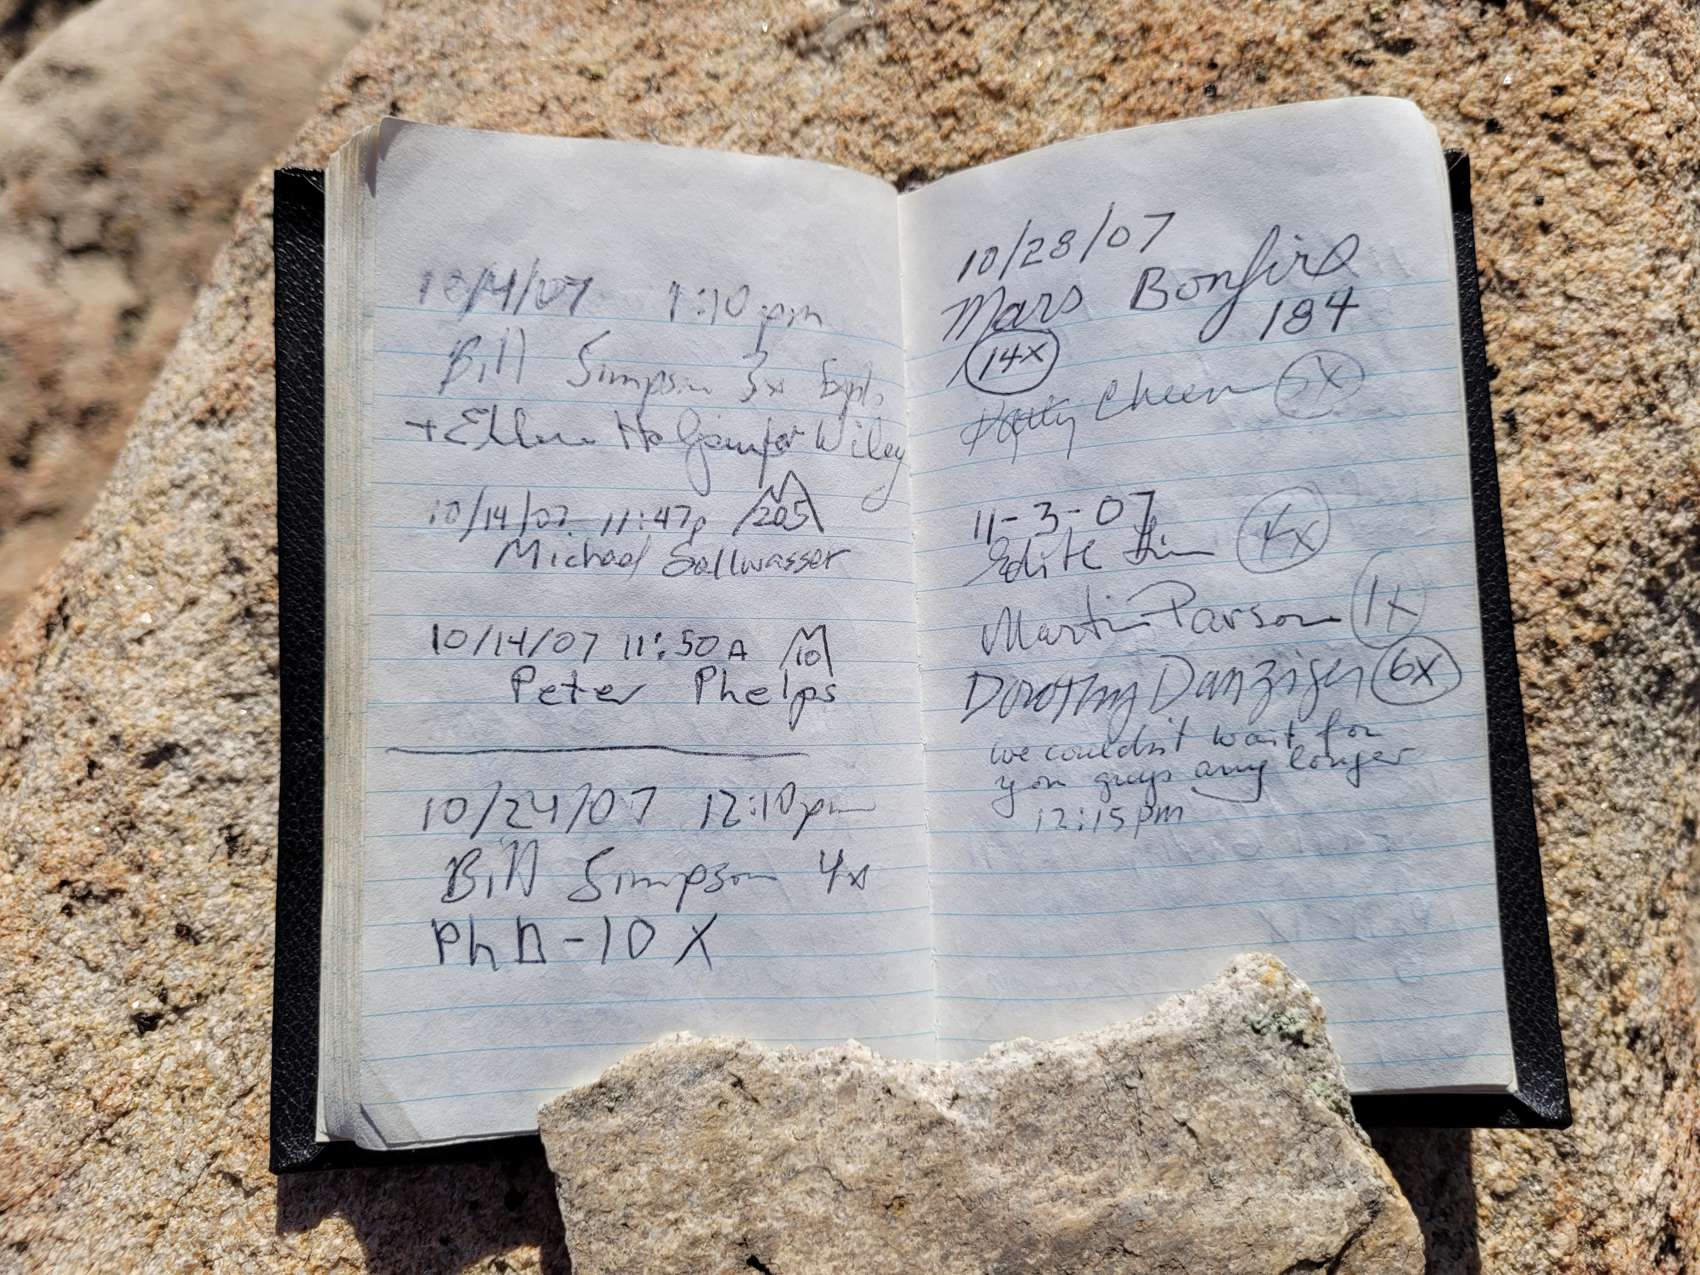 10/4/07 1:10 pm
Bill Simpson 3x Expl.
+ Ellen Wiley
10/14/07 11:47p 205
Michael Sallwasser
10/14/07 11:50 A 10
Peter Phelps
10/24/07 12:10 pm
Bill Simpson 4x
PhD - 10 X
10/28/07
Mars Bonfire
184
14x
Cheen 5X
11-3-07
4x
Martin Parsons 1x
Dorothy Danziger 6x
we couldn't wait for
you guys any longer
12:15 pm